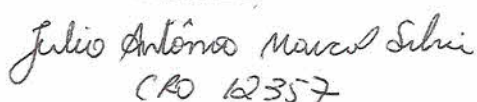 Julio Antônio Marcos Silva
CRO 12357